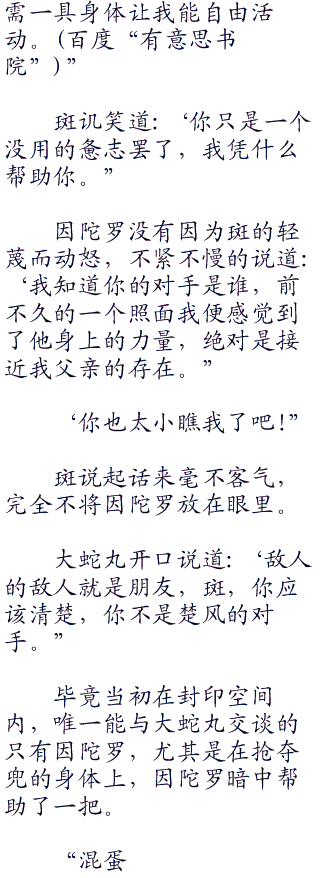 需一具身体让我能自由活
动。(百度“有意思书
院”)”
斑讥笑道:‘你只是一个
没用的惫志罢了，我凭什么
帮助你。”
因陀罗没有因为斑的轻
蔑而动怒，不紧不慢的说道:
‘我知道你的对手是谁，前
不久的一个照面我便感觉到
了他身上的力量，绝对是接
近我父亲的存在。”
‘你也太小瞧我了吧!”
斑说起话来毫不客气，
完全不将因陀罗放在眼里。
大蛇丸开口说道:‘敌人
的敌人就是朋友，斑，你应
该清楚，你不是楚风的对
手。”
毕竟当初在封印空间
内，唯一能与大蛇丸交谈的
只有因陀罗，尤其是在抢夺
兜的身体上，因陀罗暗中帮
助了一把。
“混蛋